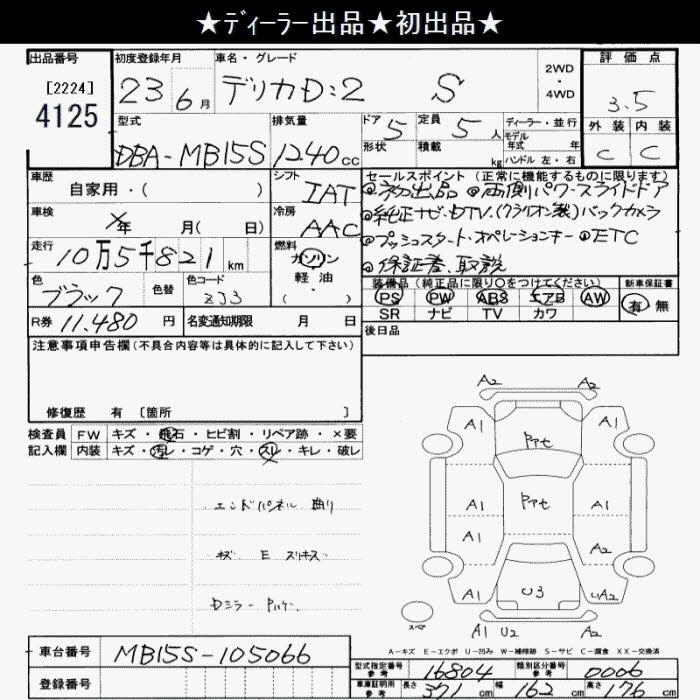 ★ディーラー出品★初出品★
出品番号
[2224]
4125
初度登録年月
23年6月
車名・グレード
デリカD:2 S
2WD
・
4WD
評価点
3.5
外装 内装
C C
型式
DBA-MB15S
排気量
1240cc
ドア 5
形状
定員 5人
積載 kg
ディーラー・並行
モデル年式 年
ハンドル 左・右
車歴
自家用・( )
シフト
IAT
車検
年 月( 日)
冷房
AAC
走行
10万5千821km
燃料
ガソリン
軽油
・( )
色
ブラック
色替
色コード
ZJ3
R券 11.480円
名変通知期限 月 日
セールスポイント(正常に機能するものに限ります)
◎初出品 ◎両側パワースライドドア
◎純正ナビ・DTV.(クラリオン製)バックカメラ
◎プッシュスタート・オペレーションキー ◎ETC
◎保証書、取説
装備品(純正品に限り○をつけてください)
PS PW ABS エアB AW
SR ナビ TV カワ
新車保証書
有 無
後日品
注意事項申告欄(不具合内容等は具体的に記入して下さい)
修復歴 有 [箇所 ]
検査員記入欄
FW キズ・飛石・ヒビ割・リペア跡・×要
内装 キズ・汚レ・コゲ・穴・スレ・キレ・破レ
エンドパネル 曲り
キズ E スリキズ
Dミラー Pハゲ.
A2 A2
A1 A1
Pアセ
A1 Pアセ A1
A1 A2
A1 U3 UA2
スペア
A1 U2 A2
A-キズ E-エクボ U-凹み W-補修跡 S-サビ C-腐食 XX-交換済
車台番号 MB15S-105066
登録番号
型式指定番号 参考 16804
類別区分番号 参考 0006
車庫証明用 参考 長さ 371cm 幅 162cm 高さ 176cm